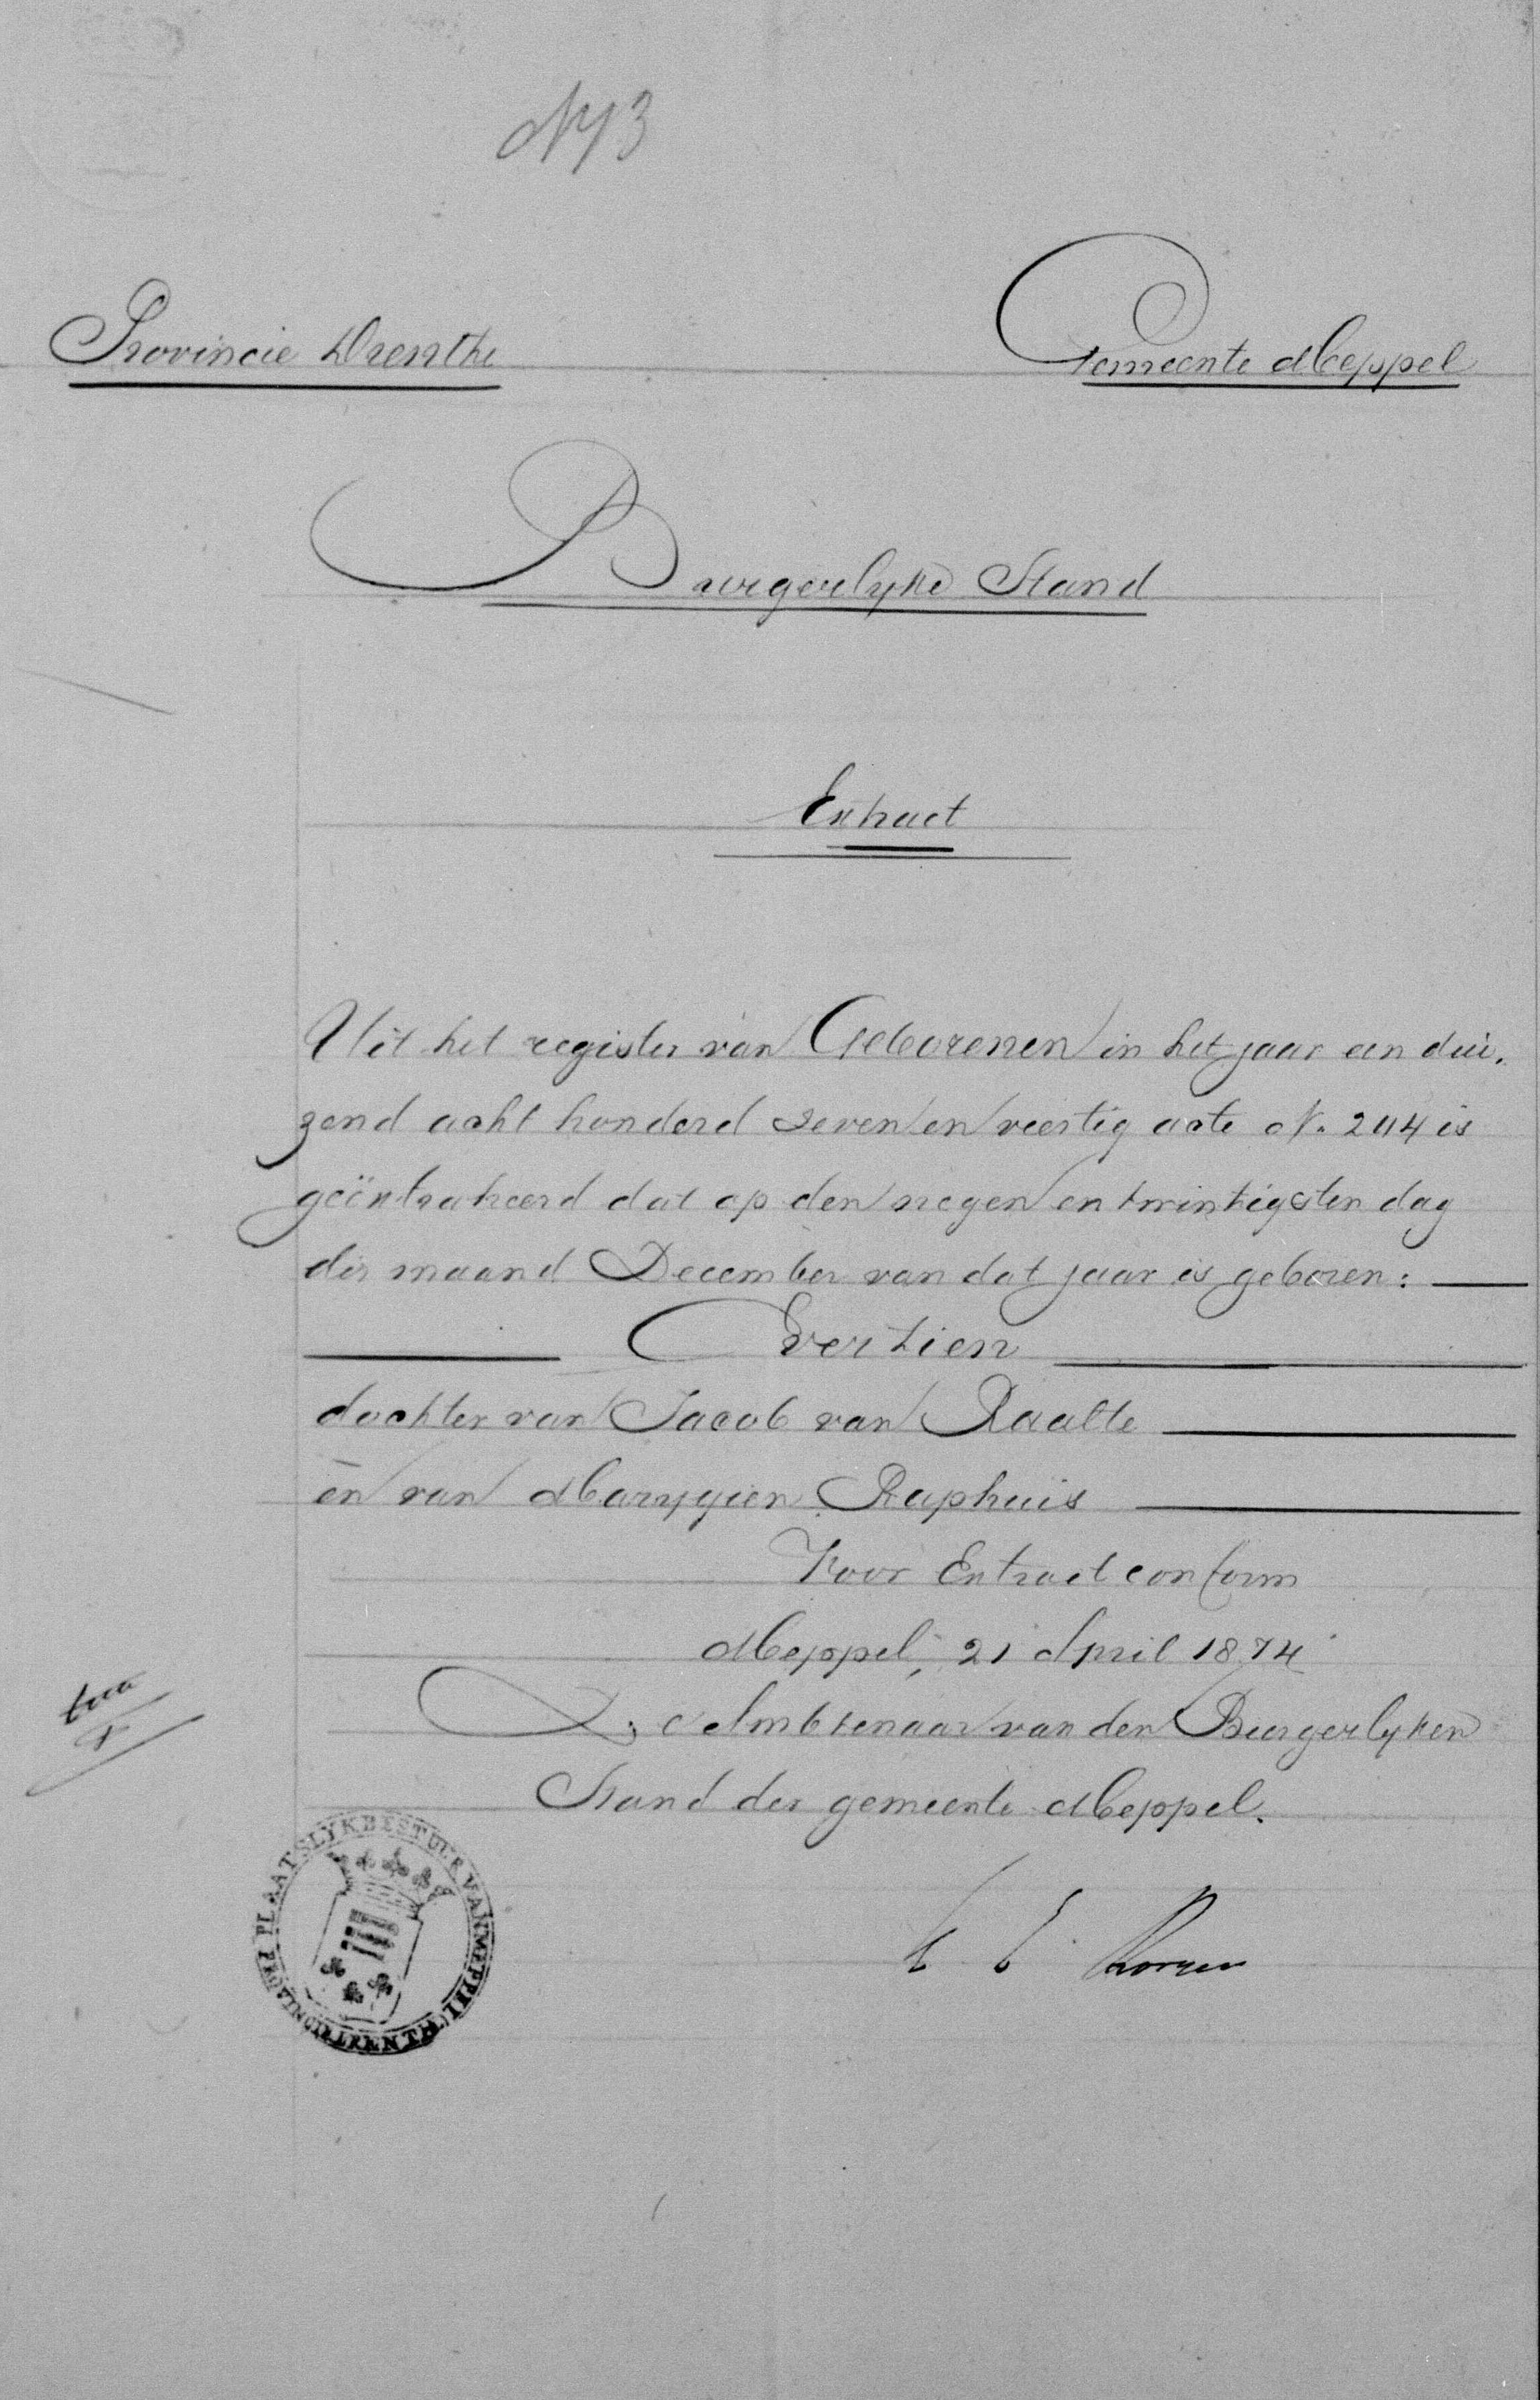 N 73
Provincie Drenthe
Gemeente Meppel
Burgerlyke Stand
Extract
Uit het register van Geborenen in het jaar een dui-
zend acht honderd zeven en veertig acte N. 244 is
geëxtraheerd dat op den negen en twintigsten dag
der maand December van dat jaar is geboren:
Evertien
dochter van Jacob van Raalte
en van Marygien Raphuis
Voor Extract conform
Meppel, 21 April 1874
De Ambtenaar van den Burgerlyken
Stand der gemeente Meppel.
PLAATSLYK BESTUUR VAN MEPPEL PROVINCIE DRENTHE